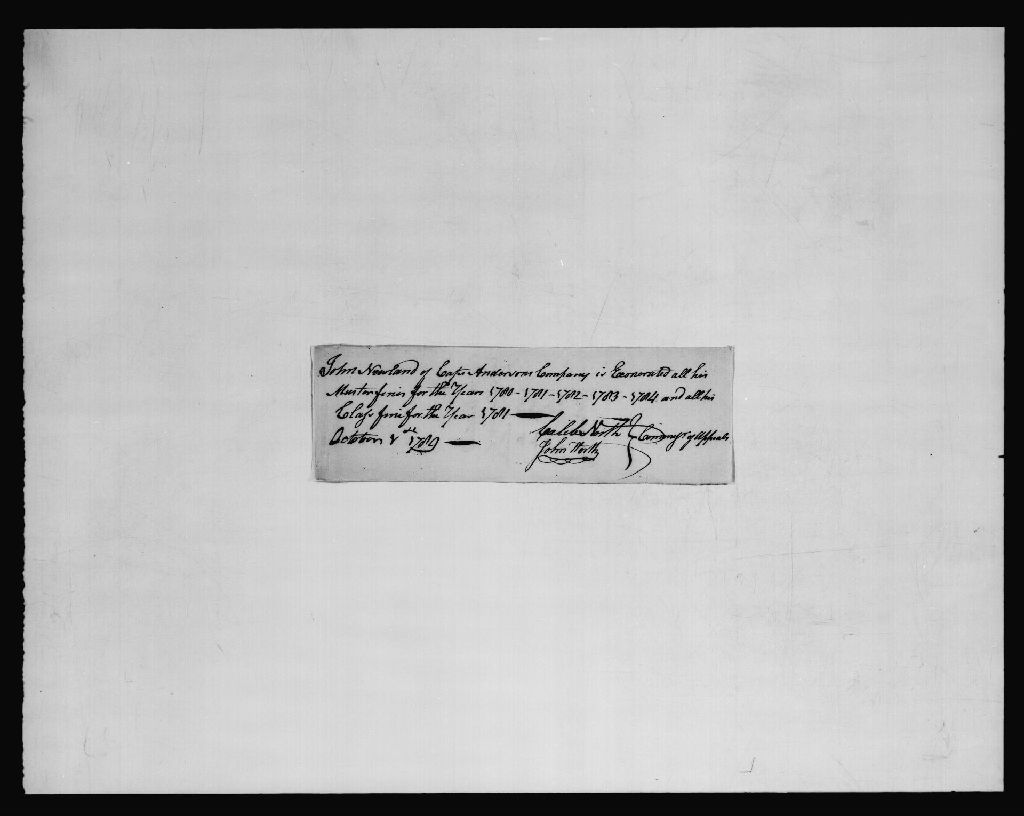 John Newland of Capt Andersons Company is Exonerated all his
Muster fines for the Years 1780 - 1781 - 1782 - 1783 - 1784 and all his
Class fine for the Year 1781
October 8th 1789 Caleb North
John North of Appeals